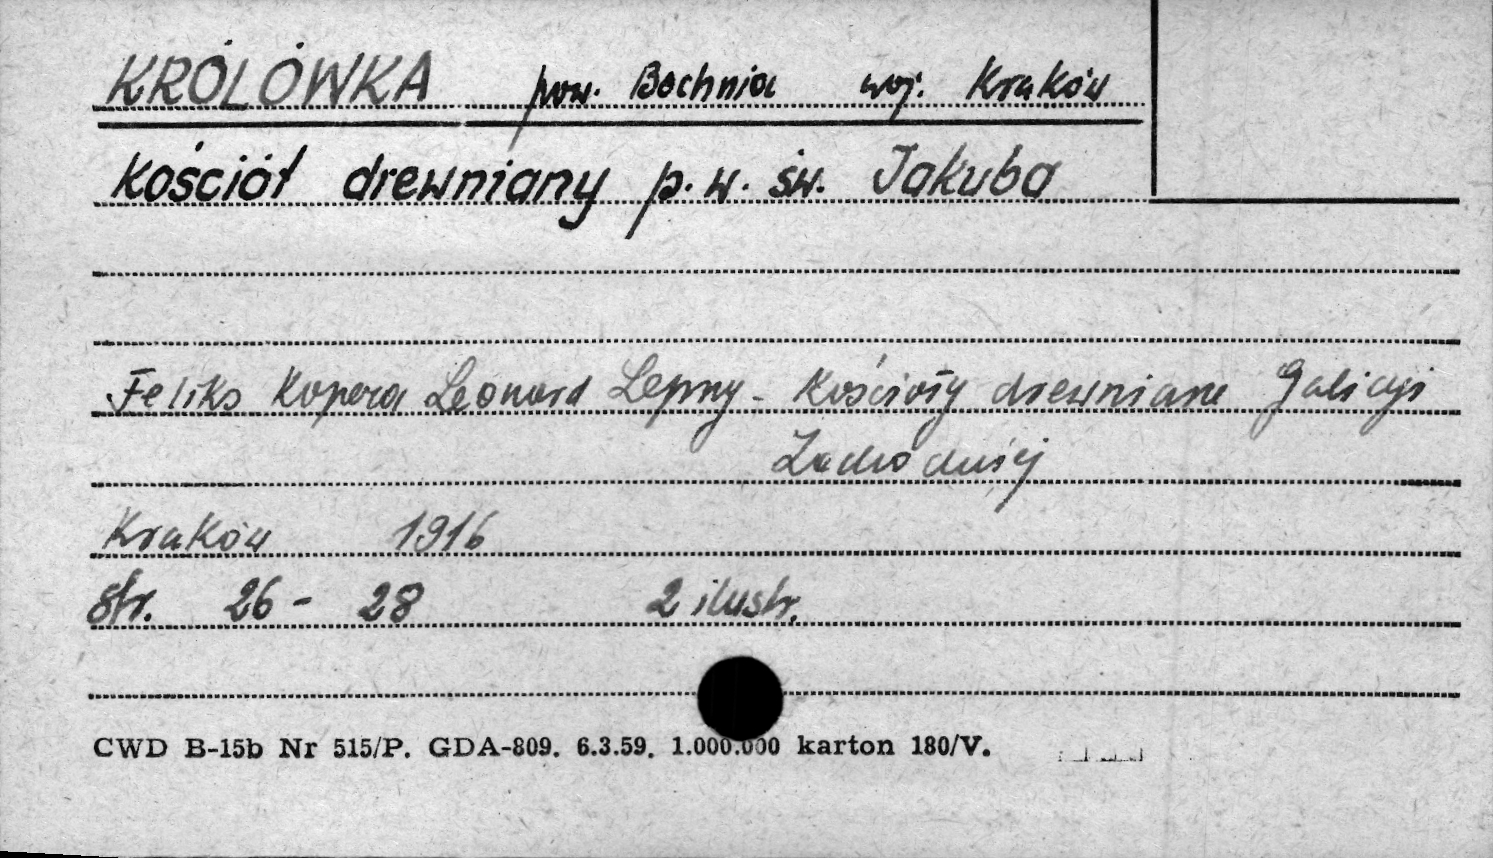 KRÓLÓWKA pow. Bochnia woj. Kraków
Kościół drewniany p.w. św. Jakuba
Feliks Kopera Leonard Lepszy - Kościoły drewniane Galicyi
Zachodniej
Kraków 1916
str. 26 - 28 2 ilustr.
CWD B-15b Nr 515/P. GDA-809. 6.3.59. 1.000.000 karton 180/V.